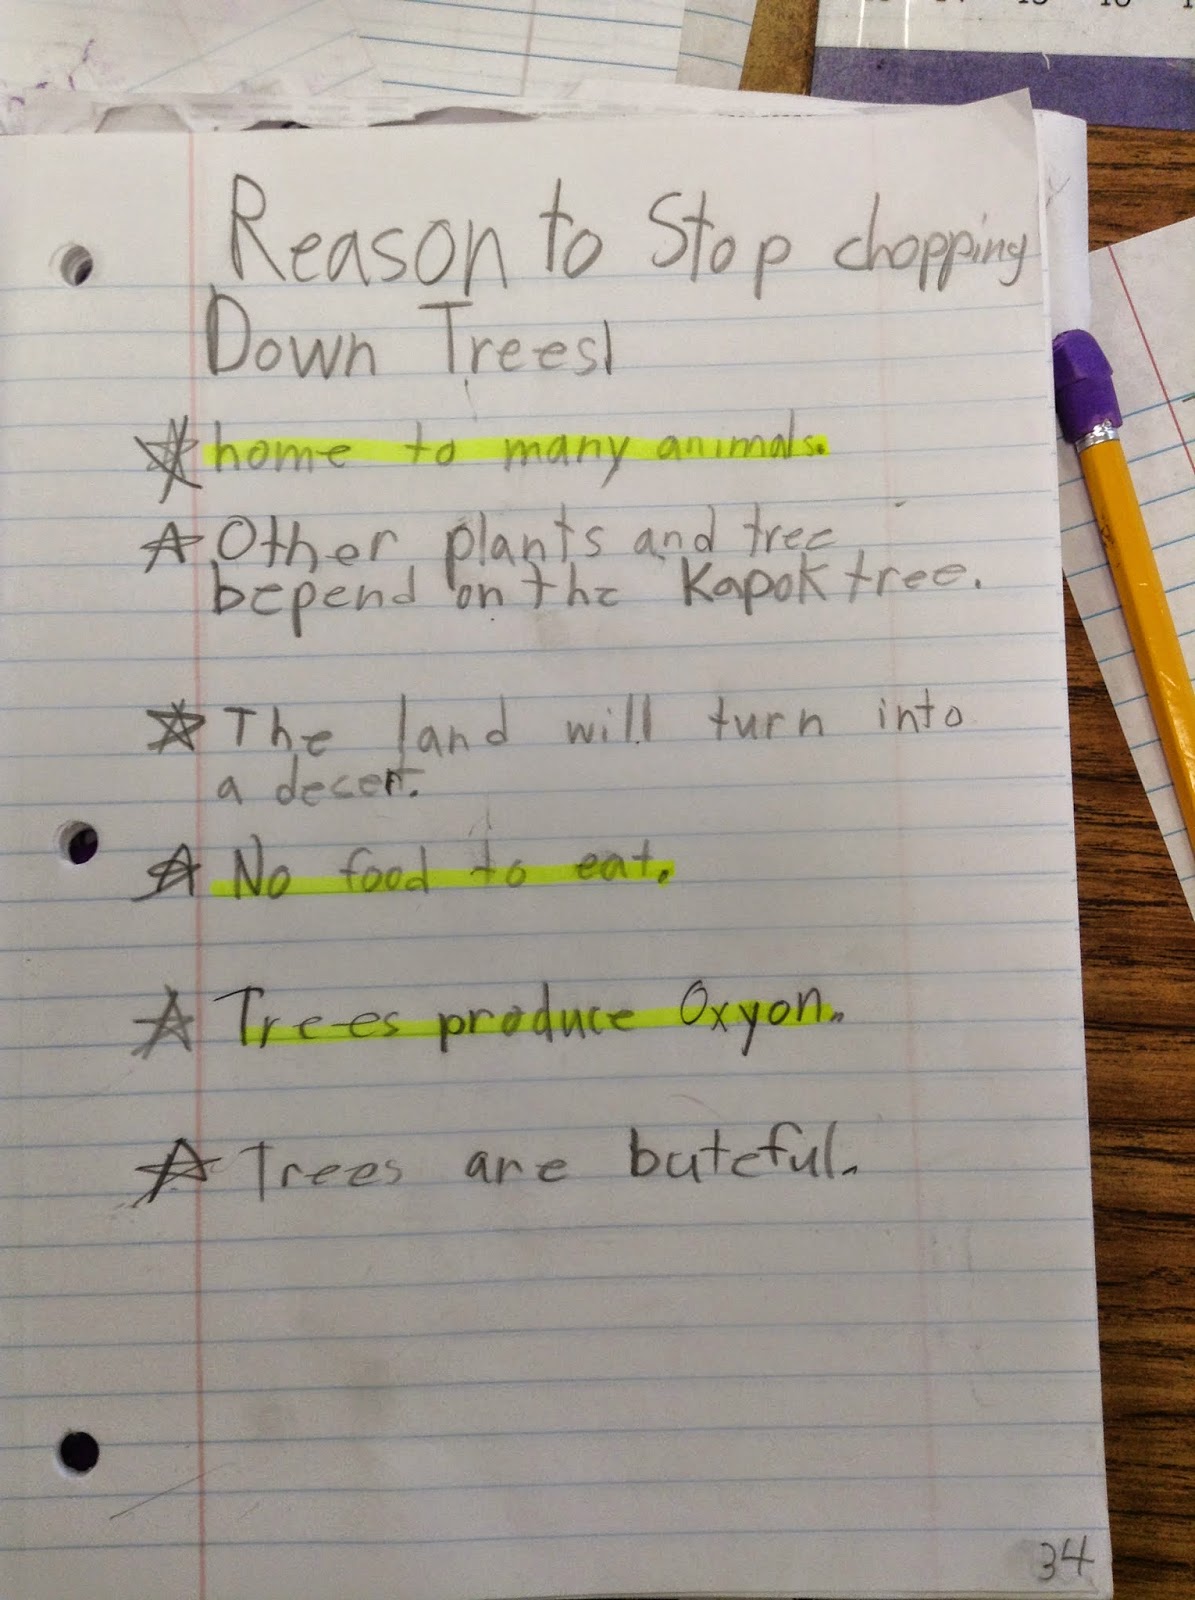 Reason to Stop chopping
Down Trees!
home to many animals.
Other plants and tree
bepend on the Kapok tree.
The land will turn into
a desert.
No food to eat.
Trees produce Oxyon.
Trees are buteful.
34